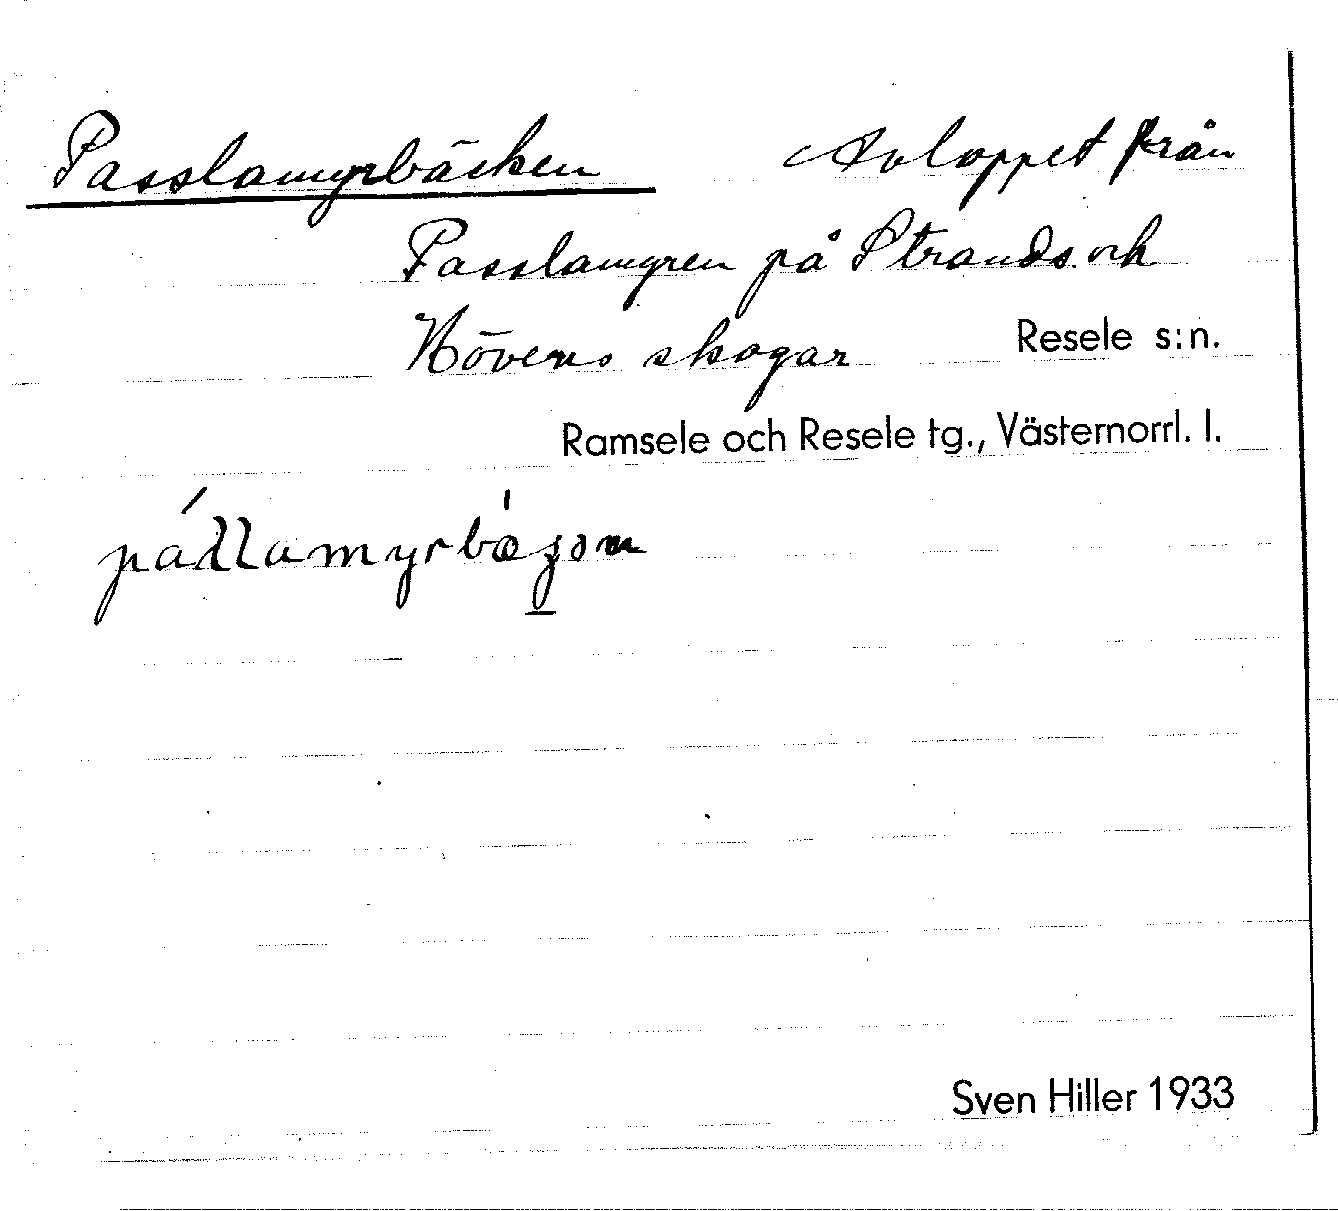 Passlamyrbäcken Avloppet från
Passlamyren på Strands och
Hövens skogar Resele s:n.
Ramsele och Resele tg., Västernorrl. l.
Sven Hiller 1933